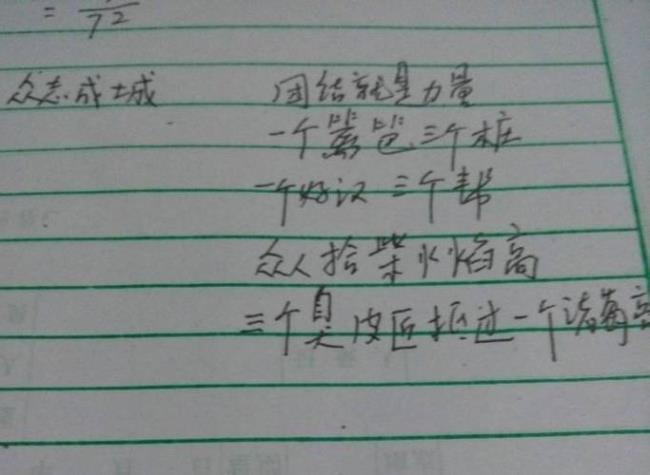 = /72
众志成城 团结就是力量
一个篱笆三个桩
一个好汉三个帮
众人拾柴火焰高
三个臭皮匠抵过一个诸葛亮